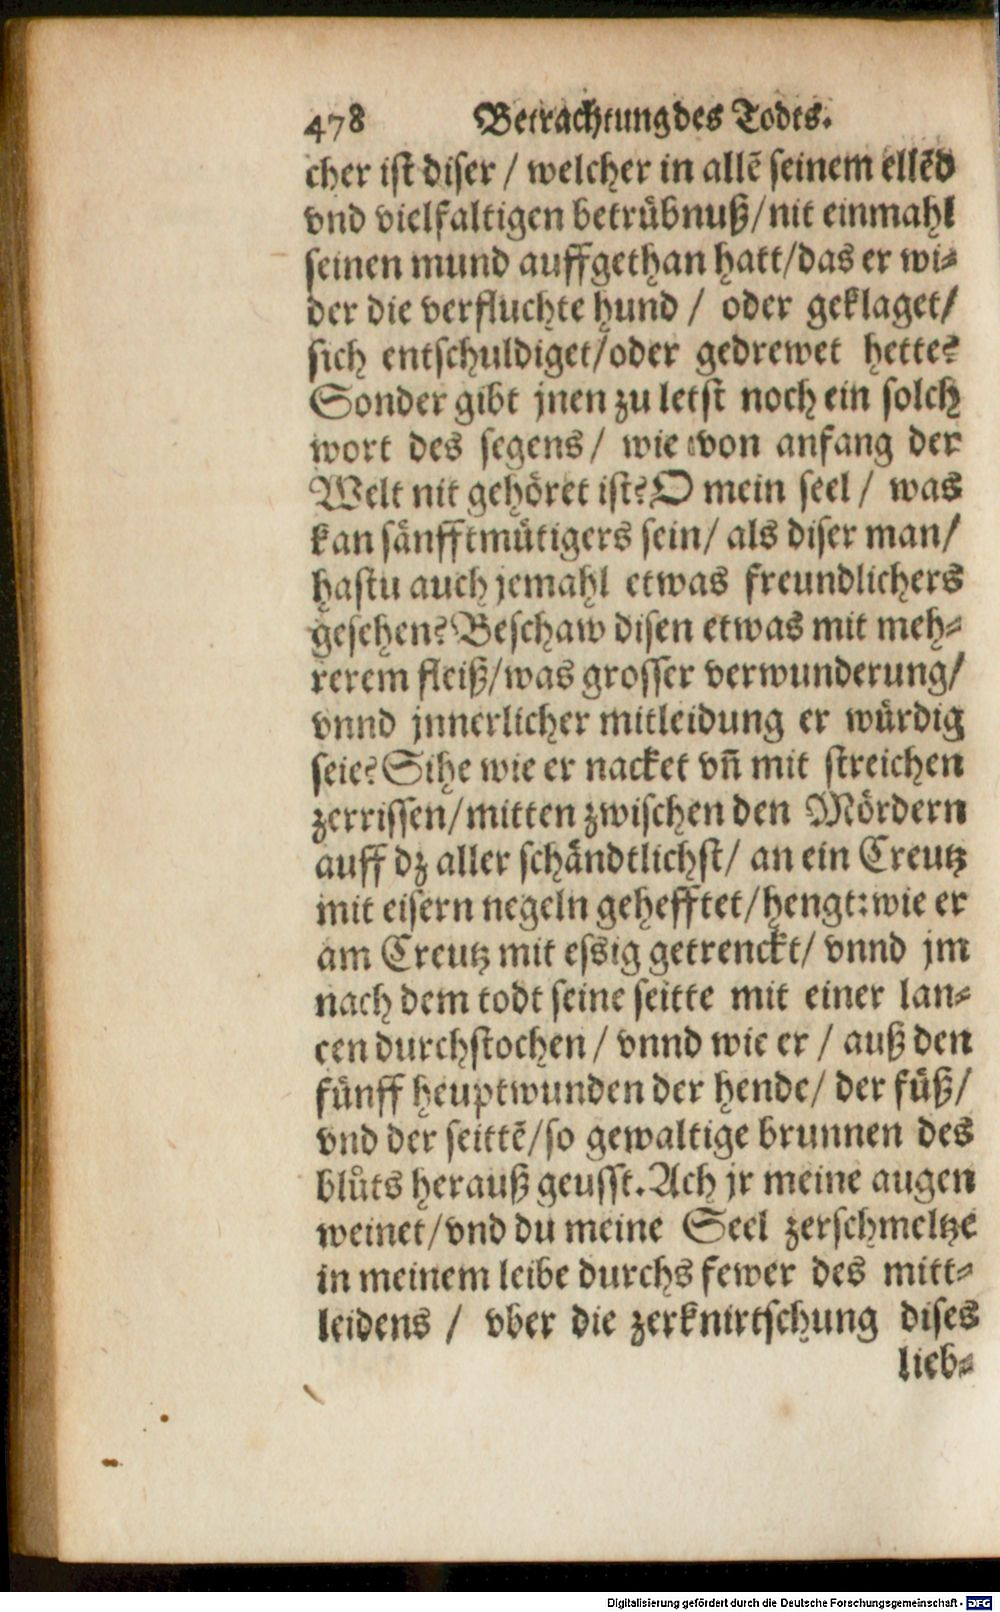 478 Betrachtung des Todts.
cher ist diser / welcher in allē seinem ellēd
vnd vielfaltigen betrübnuß/nit einmahl
seinen mund auffgethan hatt/das er wi-
der die verfluchte hund / oder geklaget/
sich entschuldiget/oder gedrewet hette?
Sonder gibt jnen zu letst noch ein solch
wort des segens / wie von anfang der
Welt nit gehöret ist? O mein seel / was
kan sänfftmütigers sein/ als diser man/
hastu auch jemahl etwas freundlichers
gesehen? Beschaw disen etwas mit meh-
rerem fleiß/was grosser verwunderung/
vnnd jnnerlicher mitleidung er würdig
seie? Sihe wie er nacket vn̄ mit streichen
zerrissen/mitten zwischen den Mördern
auff dz aller schändtlichst/ an ein Creutz
mit eisern negeln gehefftet/hengt: wie er
am Creutz mit essig getrenckt/ vnnd jm
nach dem todt seine seitte mit einer lan-
cen durchstochen / vnnd wie er / auß den
fünff heuptwunden der hende/ der füß/
vnd der seittē/so gewaltige brunnen des
blůts herauß geusst. Ach jr meine augen
weinet/vnd du meine Seel zerschmeltze
in meinem leibe durchs fewer des mitt-
leidens / vber die zerknirtschung dises
lieb-
Digitalisierung gefördert durch die Deutsche Forschungsgemeinschaft - DFG